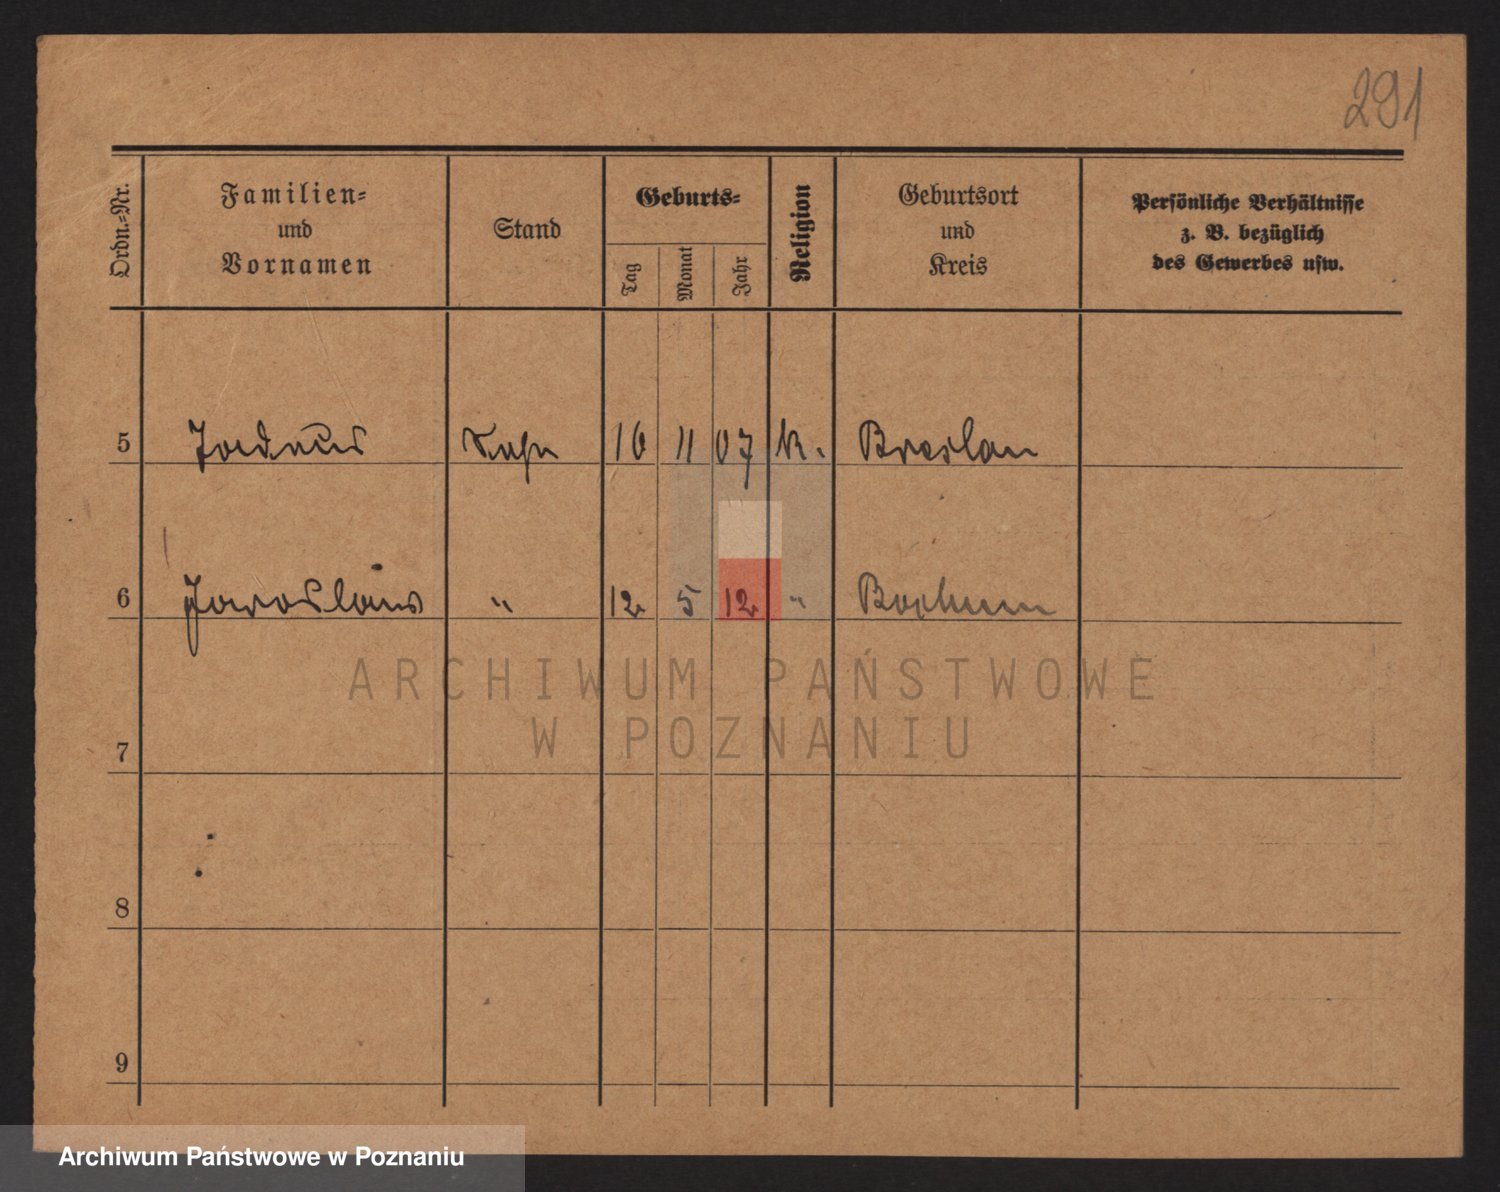 291
Ordn.-Nr.
Familien-
und
Vornamen
Stand
Geburts-
Tag
Monat
Jahr
Religion
Geburtsort
und
Kreis
Persönliche Verhältnisse
z. B. bezüglich
des Gewerbes usw.
5 Sohn 16 11 07 K. Breslau
6 Jaroslaus " 12 5 12 " Bochum
7
8
9
ARCHIWUM PAŃSTWOWE
W POZNANIU
Archiwum Państwowe w Poznaniu